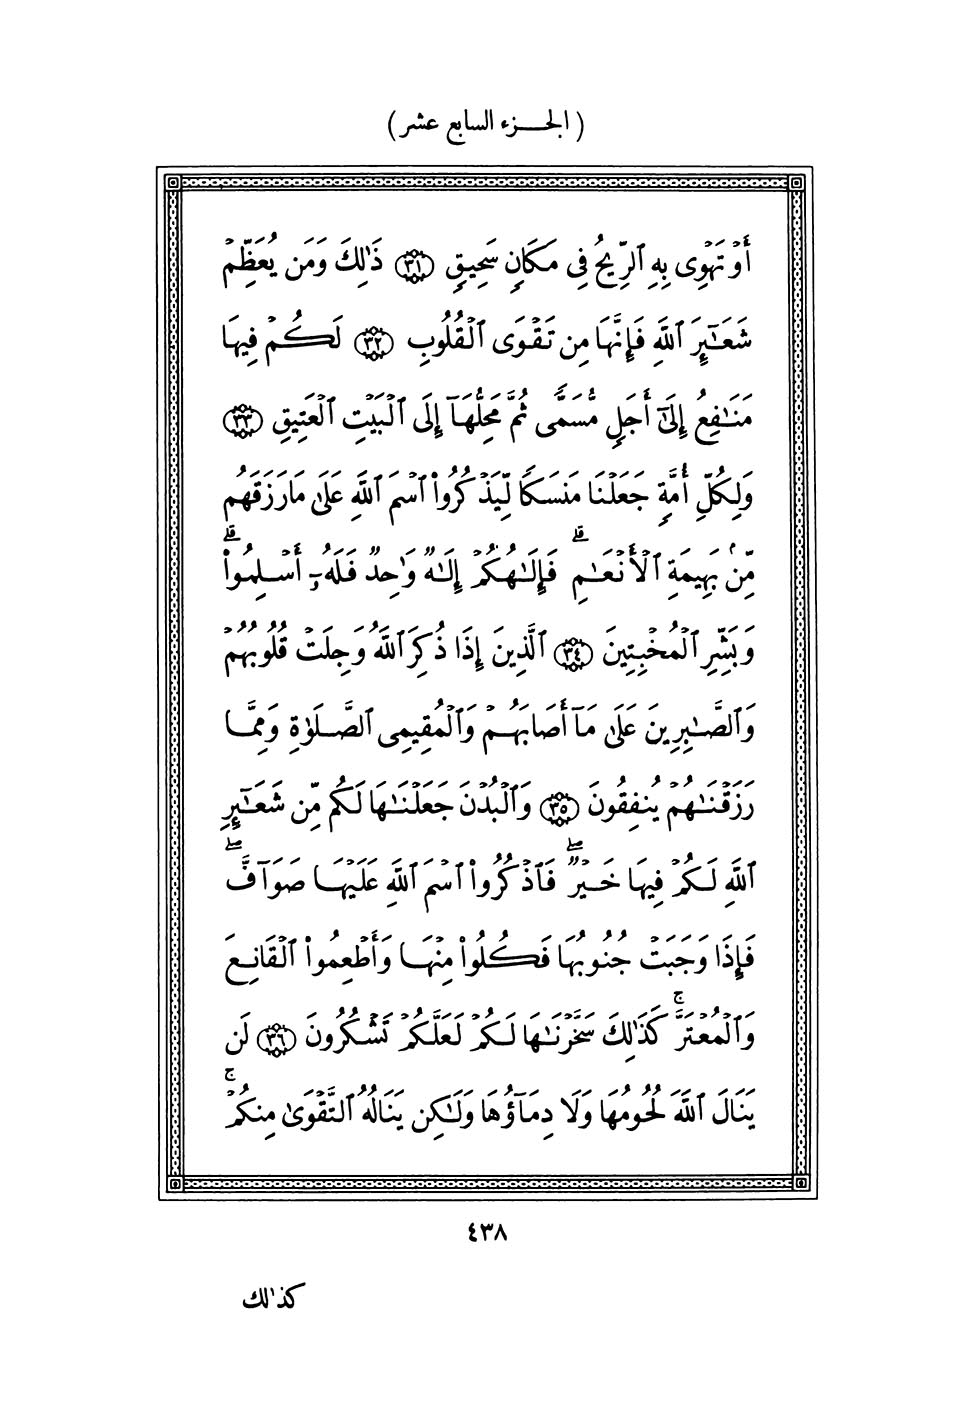 (الجـــزء السابع عشر)
أَوۡ تَهۡوِى بِهِ ٱلرِّيحُ فِى مَكَانٍ سَحِيقٍ ٣١ ذَٰلِكَ وَمَن يُعَظِّمۡ
شَعَـٰٓئِرَ ٱللَّهِ فَإِنَّهَا مِن تَقۡوَى ٱلۡقُلُوبِ ٣٢ لَكُمۡ فِيهَا
مَنَـٰفِعُ إِلَىٰٓ أَجَلٍ مُّسَمًّى ثُمَّ مَحِلُّهَآ إِلَى ٱلۡبَيۡتِ ٱلۡعَتِيقِ ٣٣
وَلِكُلِّ أُمَّةٍ جَعَلۡنَا مَنسَكًا لِّيَذۡكُرُواْ ٱسۡمَ ٱللَّهِ عَلَىٰ مَا رَزَقَهُم
مِّنۢ بَهِيمَةِ ٱلۡأَنۡعَـٰمِۗ فَإِلَـٰهُكُمۡ إِلَـٰهٌ وَٰحِدٌ فَلَهُۥٓ أَسۡلِمُواْۗ
وَبَشِّرِ ٱلۡمُخۡبِتِينَ ٣٤ ٱلَّذِينَ إِذَا ذُكِرَ ٱللَّهُ وَجِلَتۡ قُلُوبُهُمۡ
وَٱلصَّـٰبِرِينَ عَلَىٰ مَآ أَصَابَهُمۡ وَٱلۡمُقِيمِى ٱلصَّلَوٰةِ وَمِمَّا
رَزَقۡنَـٰهُمۡ يُنفِقُونَ ٣٥ وَٱلۡبُدۡنَ جَعَلۡنَـٰهَا لَكُم مِّن شَعَـٰٓئِرِ
ٱللَّهِ لَكُمۡ فِيهَا خَيۡرٌۖ فَٱذۡكُرُواْ ٱسۡمَ ٱللَّهِ عَلَيۡهَا صَوَآفَّۖ
فَإِذَا وَجَبَتۡ جُنُوبُهَا فَكُلُواْ مِنۡهَا وَأَطۡعِمُواْ ٱلۡقَانِعَ
وَٱلۡمُعۡتَرَّۚ كَذَٰلِكَ سَخَّرۡنَـٰهَا لَكُمۡ لَعَلَّكُمۡ تَشۡكُرُونَ ٣٦ لَن
يَنَالَ ٱللَّهَ لُحُومُهَا وَلَا دِمَآؤُهَا وَلَـٰكِن يَنَالُهُ ٱلتَّقۡوَىٰ مِنكُمۡۚ
٤٣٨
كذٰلك